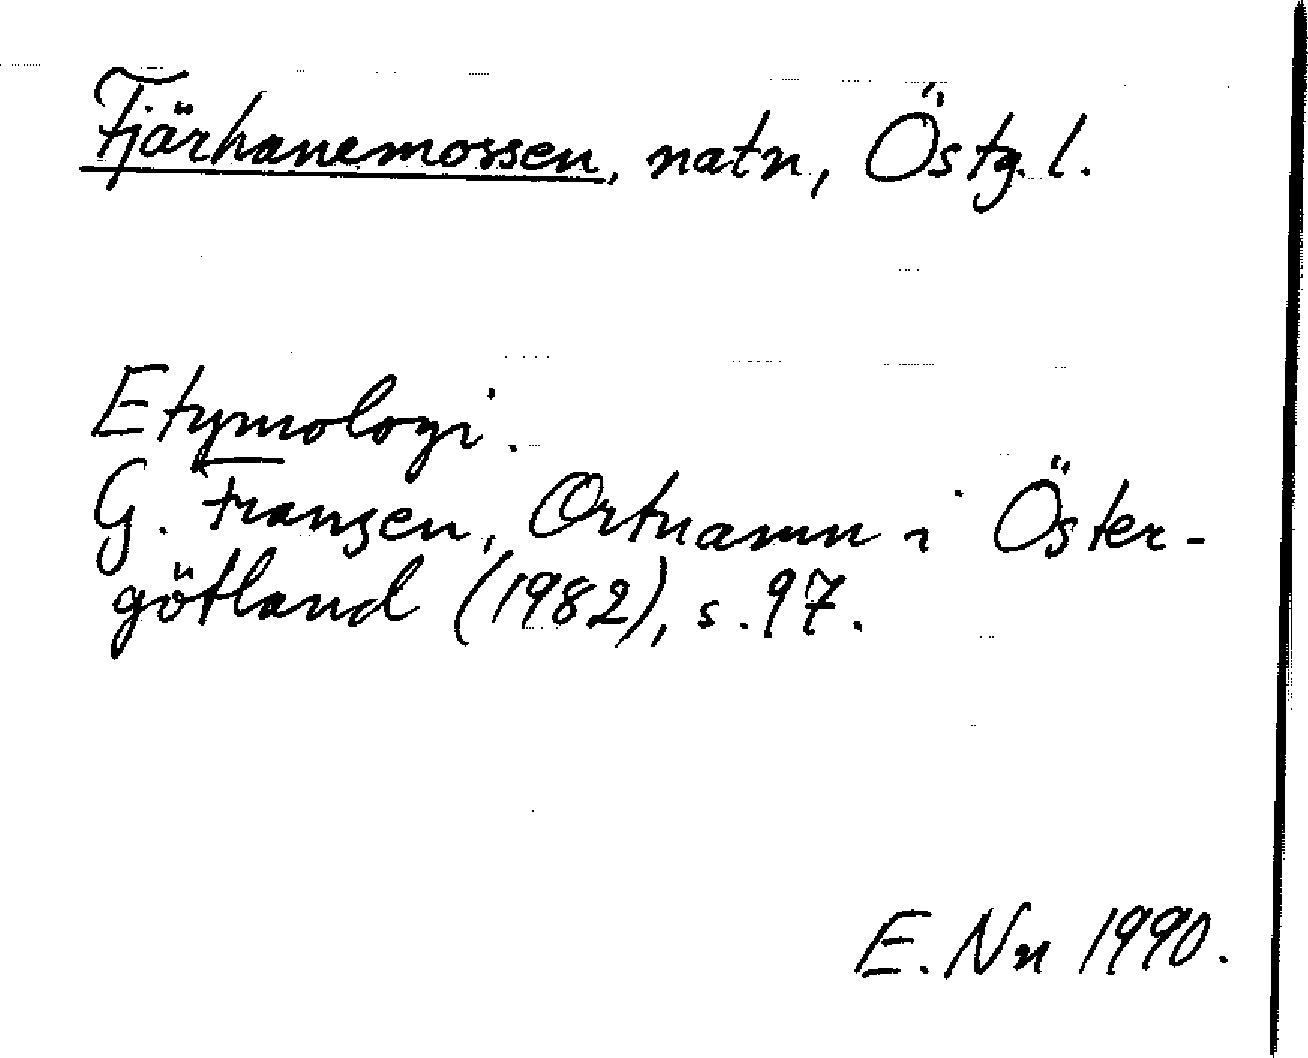 Fjärhanemossen, natn, Östg. l.
Etymologi.
G. Franzen, Ortnamn i Öster-
götland (1982), s. 97.
E. Nn 1990.